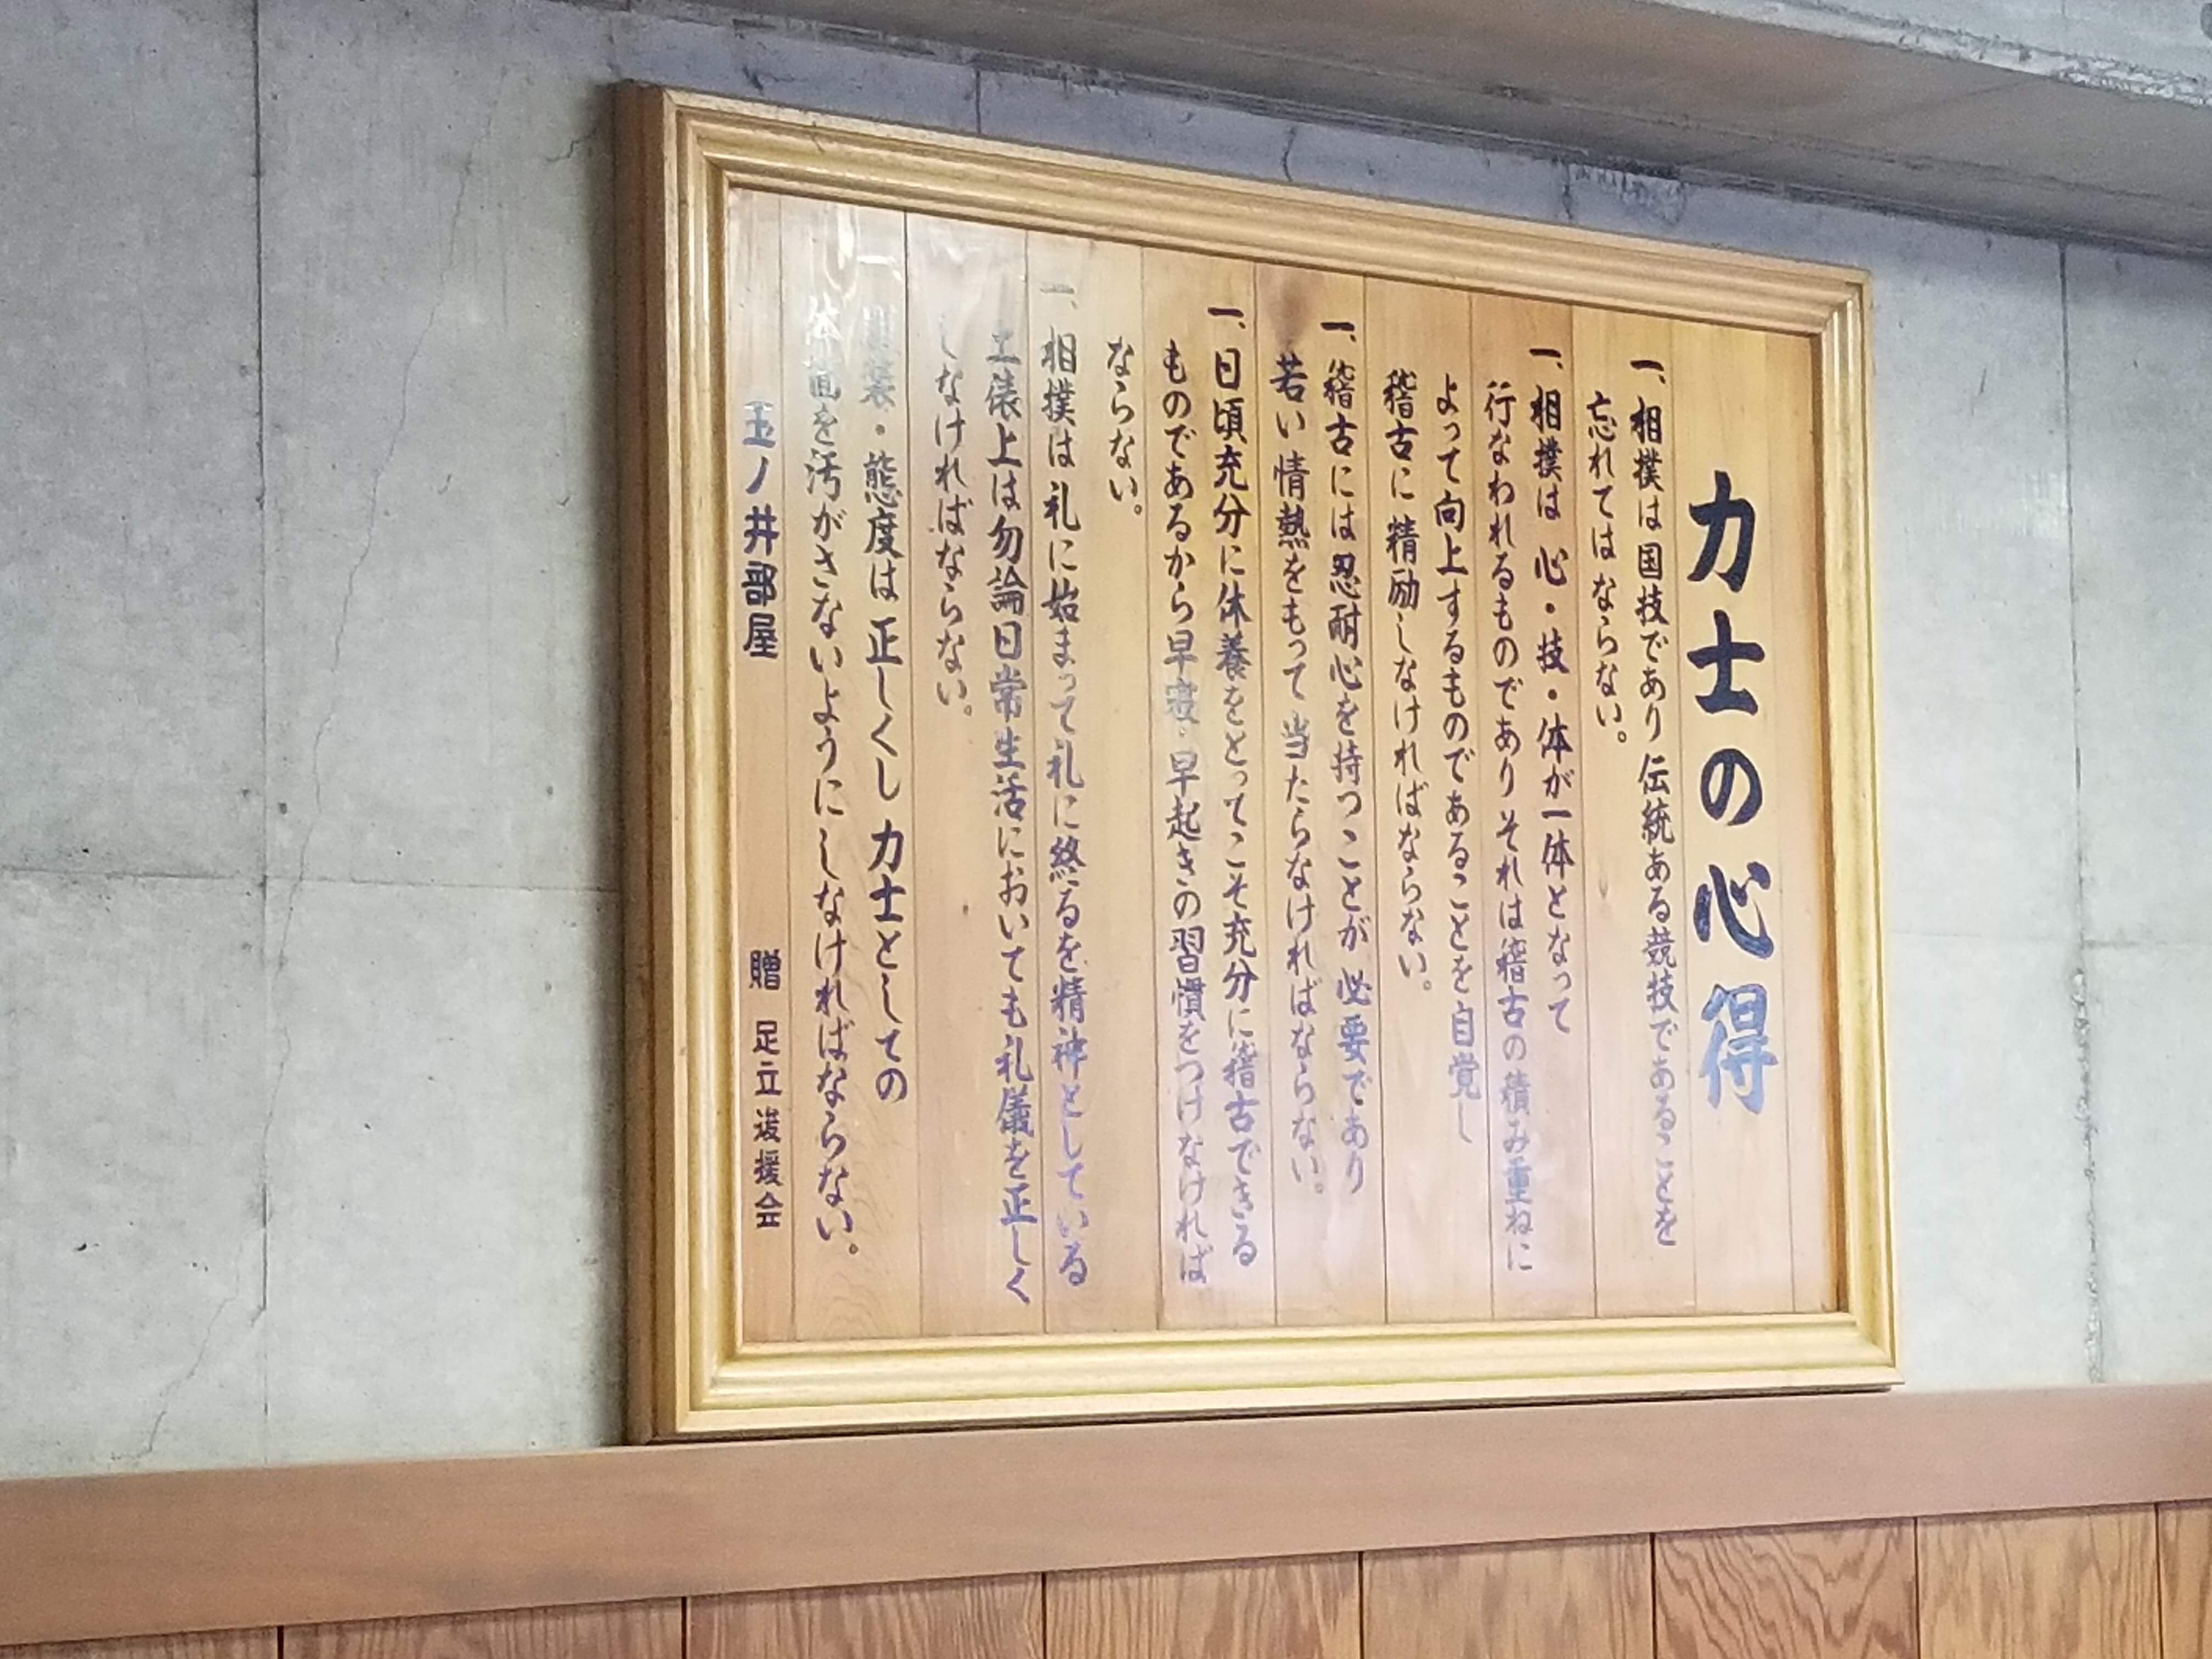 力士の心得
一、相撲は国技であり伝統ある競技であることを
忘れてはならない。
一、相撲は心・技・体が一体となって
行なわれるものでありそれは稽古の積み重ねに
よって向上するものであることを自覚し
稽古に精励しなければならない。
一、稽古には忍耐心を持つことが必要であり
若い情熱をもって当たらなければならない。
一、日頃充分に休養をとってこそ充分に稽古できる
ものであるから早寝・早起きの習慣をつけなければ
ならない。
一、相撲は礼に始まって礼に終るを精神としている
土俵上は勿論日常生活においても礼儀を正しく
しなければならない。
一、服装・態度は正しくし力士としての
体面を汚がさないようにしなければならない。
玉ノ井部屋
贈 足立後援会